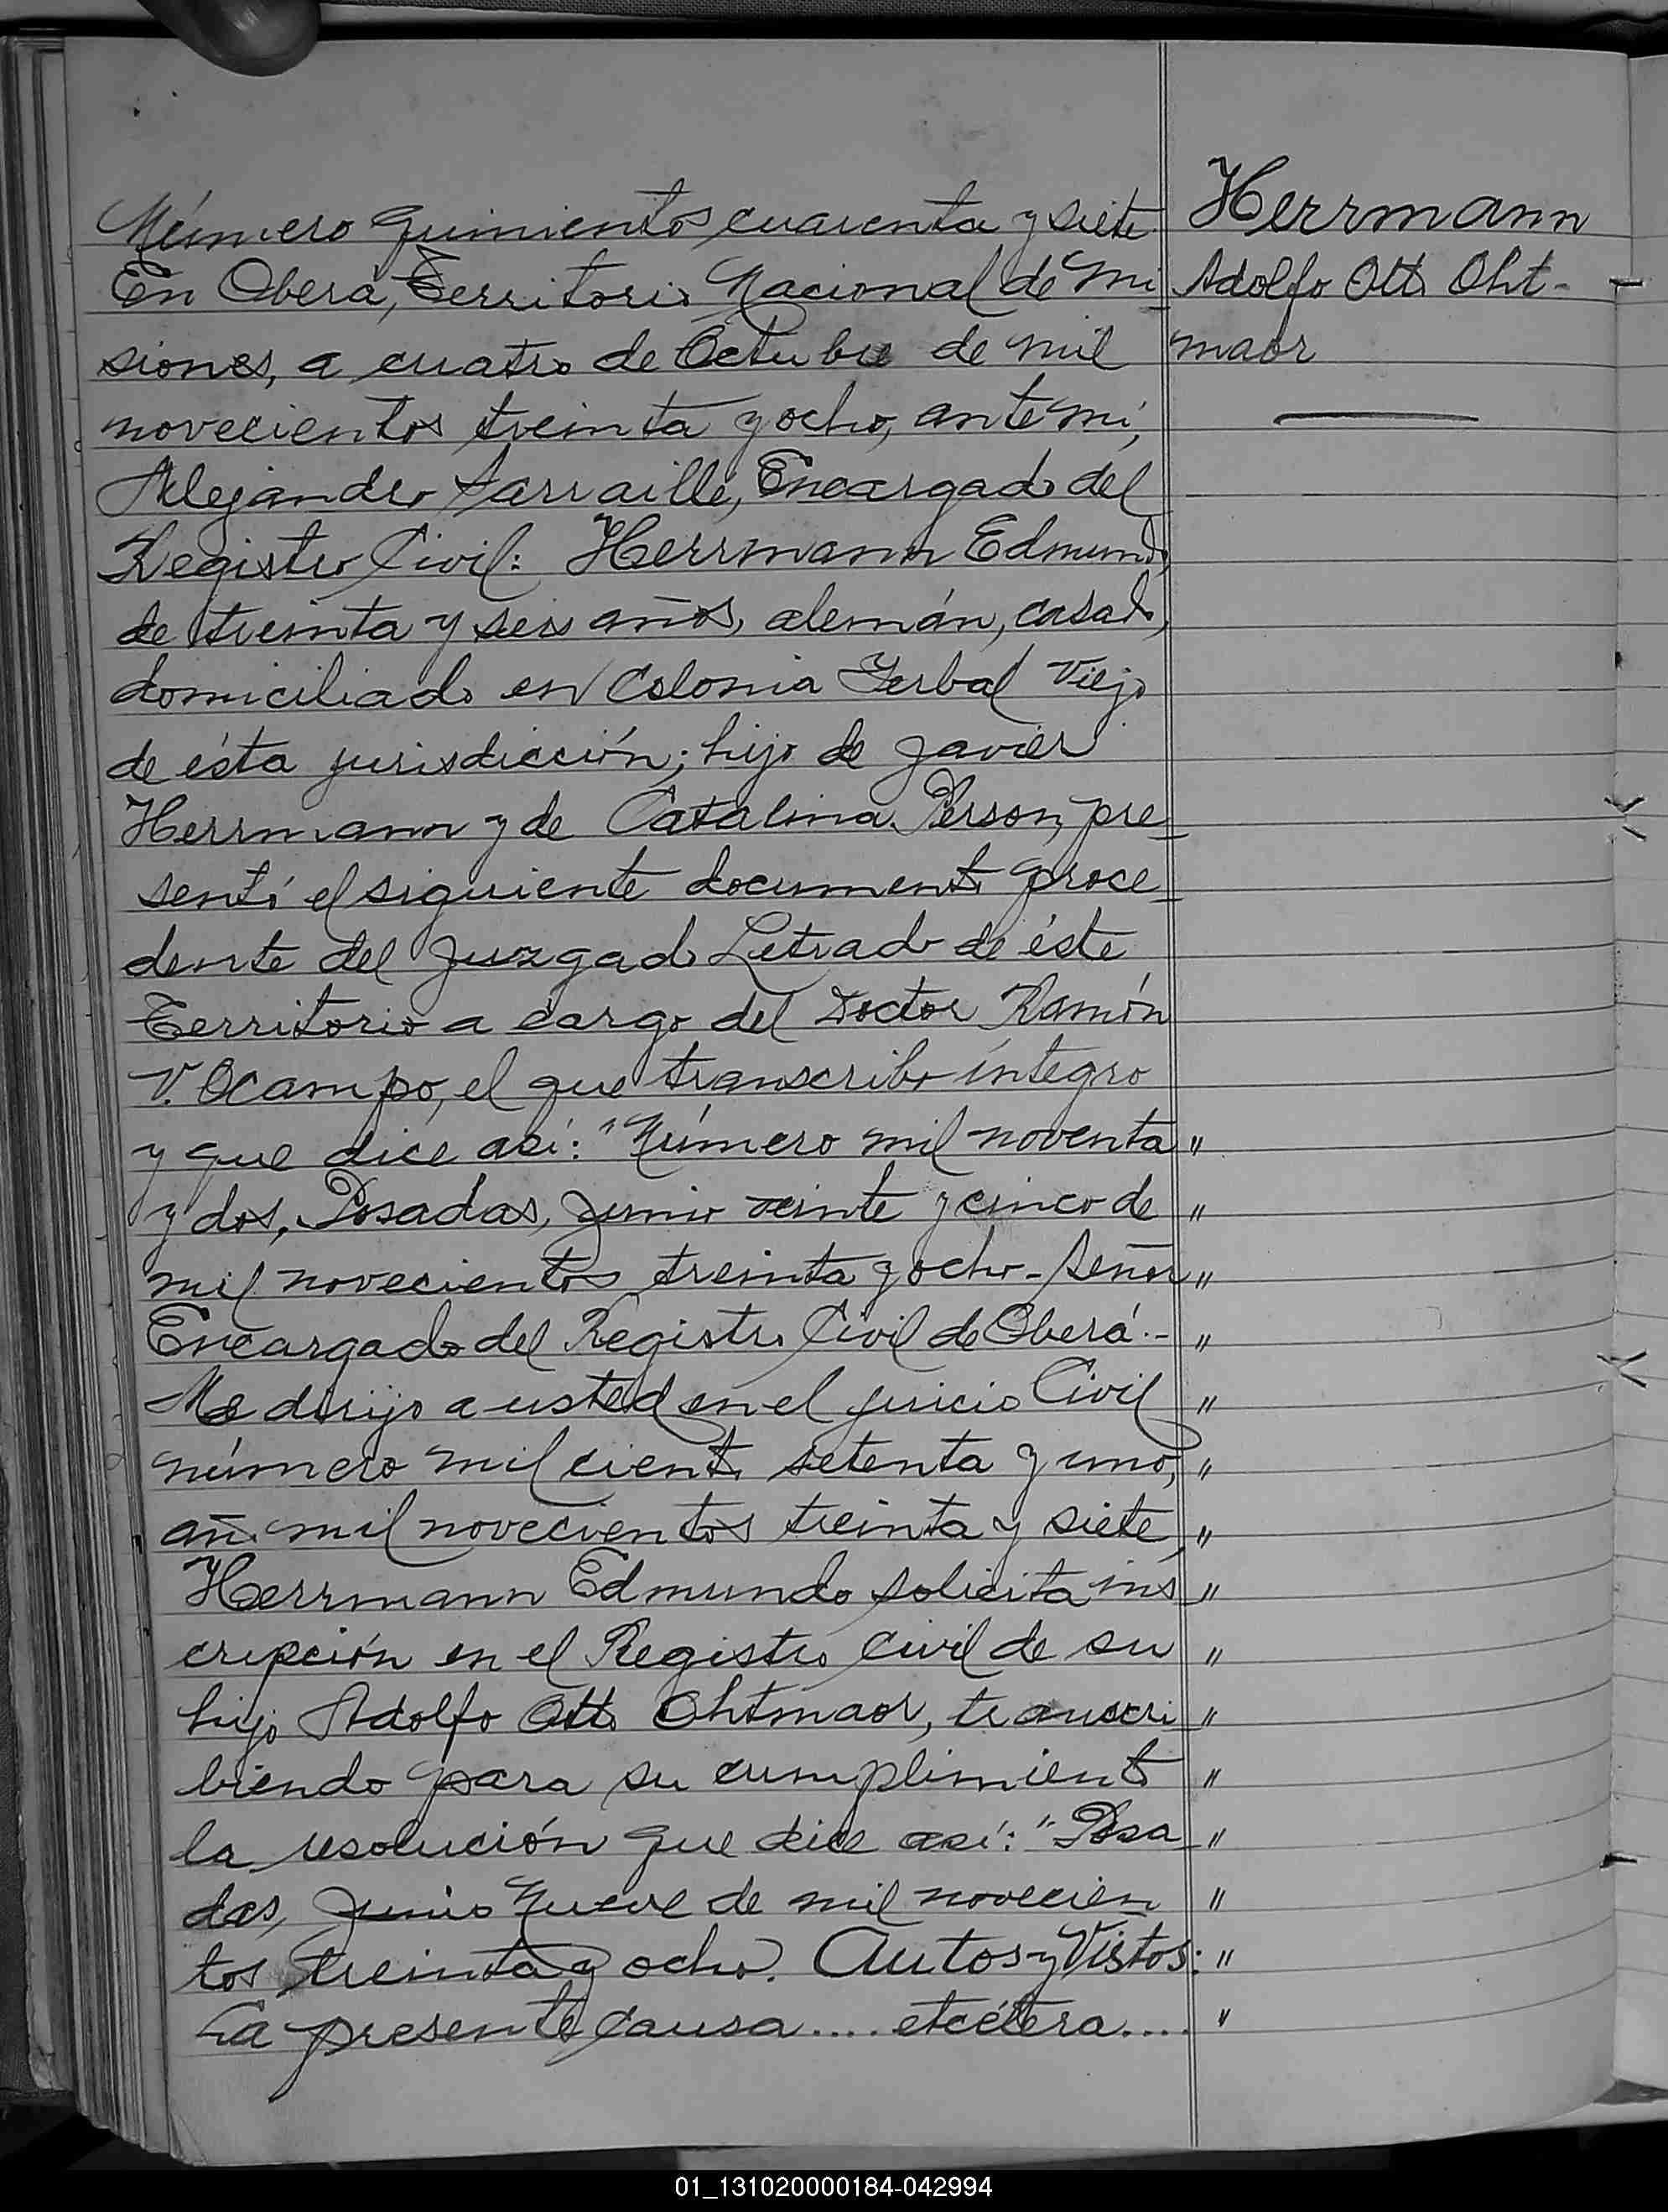 Herrmann
Adolfo Otto Oht-
maor
Número quinientos cuarenta y siete
En Oberá, Territorio Nacional de Mi
siones, a cuatro de Octubre de mil
novecientos treinta y ocho, ante mí,
Alejandro Sarraillé, Encargado del
Registro Civil: Herrmann Edmundo,
de treinta y seis años, alemán, casado,
domiciliado en Colonia Yerbal Viejo
de ésta jurisdicción; hijo de Javier
Herrmann y de Catalina Person, pre_
sentó el siguiente documento proce_
dente del Juzgado Letrado de éste
Territorio a cargo del Doctor Ramón
V. Ocampo, el que transcribo íntegro
y que dice así: "Número mil noventa "
y dos, Posadas, Junio veinte y cinco de "
mil novecientos treinta y ocho - Señor "
Encargado del Registro Civil de Oberá.- "
Me dirijo a usted en el juicio Civil "
número mil ciento setenta y uno, "
año mil novecientos treinta y siete, "
Herrmann Edmundo solicita ins "
cripción en el Registro Civil de su "
hijo Adolfo Otto Ohtmaor, transcri "
biendo para su cumplimiento "
la resolución que dice así: "Posa "
das, Junio Nueve de mil novecien "
tos treinta y ocho. Autos y Vistos: "
La presente causa.... etcétera.... "
01_131020000184-042994